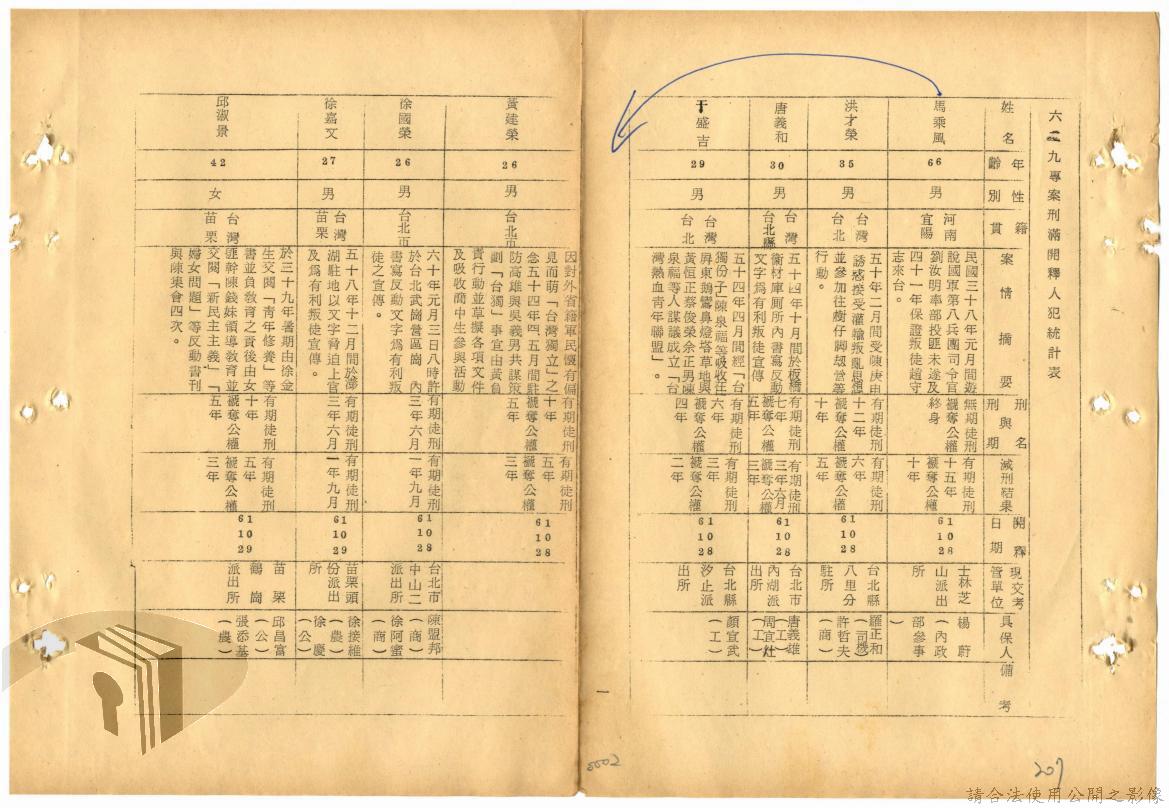 六二九專案刑滿開釋人犯統計表
姓名
年齡
性別
籍貫
案情摘要
刑名與刑期
減刑結果
開釋日期
現交考管單位
具保人
備考
馬乘風
66
男
河南
宜陽
民國三十八年元月間遊
說國軍第八兵團司令官
劉汝明率部投匪未遂及
四十一年保證叛徒趙守
志來台。
無期徒刑
褫奪公權
終身
有期徒刑
十五年
褫奪公權
十年
61
10
28
士林芝
山派出
所
楊蔚
(內政
部參事
)
洪才榮
35
男
台灣
台北
五十年二月間受陳庚由
誘惑接受灌輸叛亂思想
並參加往樹仔脚刼營等
行動。
有期徒刑
十二年
褫奪公權
十年
有期徒刑
六年
褫奪公權
五年
61
10
28
台北縣
八里分
駐所
羅正和
(司機)
許哲夫
(商)
唐義和
30
男
台灣
台北縣
五十四年十月間於板橋
衡材庫厠所內書寫反動
文字爲有利叛徒宣傳
有期徒刑
七年
褫奪公權
五年
有期徒刑
三年六月
褫奪公權
三年
61
10
28
台北市
內湖派
出所
唐義雄
(工)
周宜灶
(工)
于盛吉
29
男
台灣
台北
五十四年四月間經「台
獨份子」陳泉福等吸收在
屏東鵝鸞鼻燈塔草地與
黃恒正蔡俊榮余正男陳
泉福等人謀議成立「台
灣熱血青年聯盟」。
有期徒刑
六年
褫奪公權
四年
有期徒刑
三年
褫奪公權
二年
61
10
28
台北縣
汐止派
出所
顏宣武
(工)
黃建榮
26
男
台北市
因對外省籍軍民懷有偏
見而萌「台灣獨立」之
念五十四年四、五月間駐
防高雄與吳義男共謀策
劃「台獨」事宜由黃負
責行動並草擬各項文件
及吸收商中生參與活動
有期徒刑
十年
褫奪公權
五年
有期徒刑
五年
褫奪公權
三年
61
10
28
徐國榮
26
男
台北市
六十年元月三日八時許
於台北武崗營區崗內
書寫反動文字爲有利叛
徒之宣傳。
有期徒刑
三年六月
有期徒刑
一年九月
61
10
28
台北市
中山二
派出所
陳盟邦
(商)
徐阿蜜
(商)
徐嘉文
27
男
台灣
苗栗
五十八年十二月間於澎
湖駐地以文字脅迫上官
及爲有利叛徒宣傳。
有期徒刑
三年六月
有期徒刑
一年九月
61
10
29
苗栗頭
份派出
所
徐接維
(農)
徐慶
(公)
邱淑景
42
女
台灣
苗栗
於三十九年暑期由徐金
生交閱「靑年修養」等
書並負敎育之責後由女
匪幹陳錢妹領導敎育並
交閱「新民主主義」、「
婦女問題」等反動書刊
與陳集會四次。
有期徒刑
十年
褫奪公權
五年
有期徒刑
五年
褫奪公權
三年
61
10
29
苗栗
鶴崗
派出所
邱昌富
(公)
張添基
(農)
一
0002
207
請合法使用公開之影像